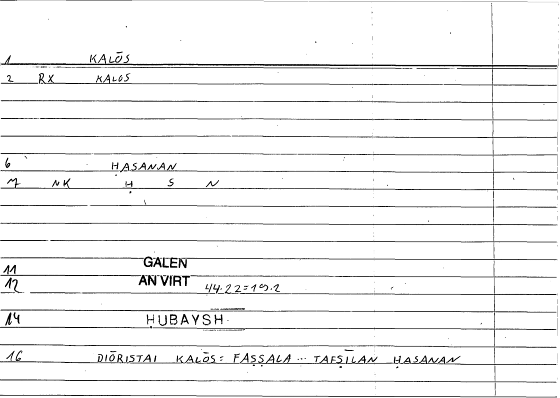 1 KALŌS
2 RX KALOS
6 ḤASANAN
7 NK Ḥ S N
11 GALEN
12 AN VIRT 44.22=19.2
14 ḤUBAYSH
16 DIŌRISTAI KALŌS: FAṢṢALA ... TAFṢĪLAN ḤASANAN